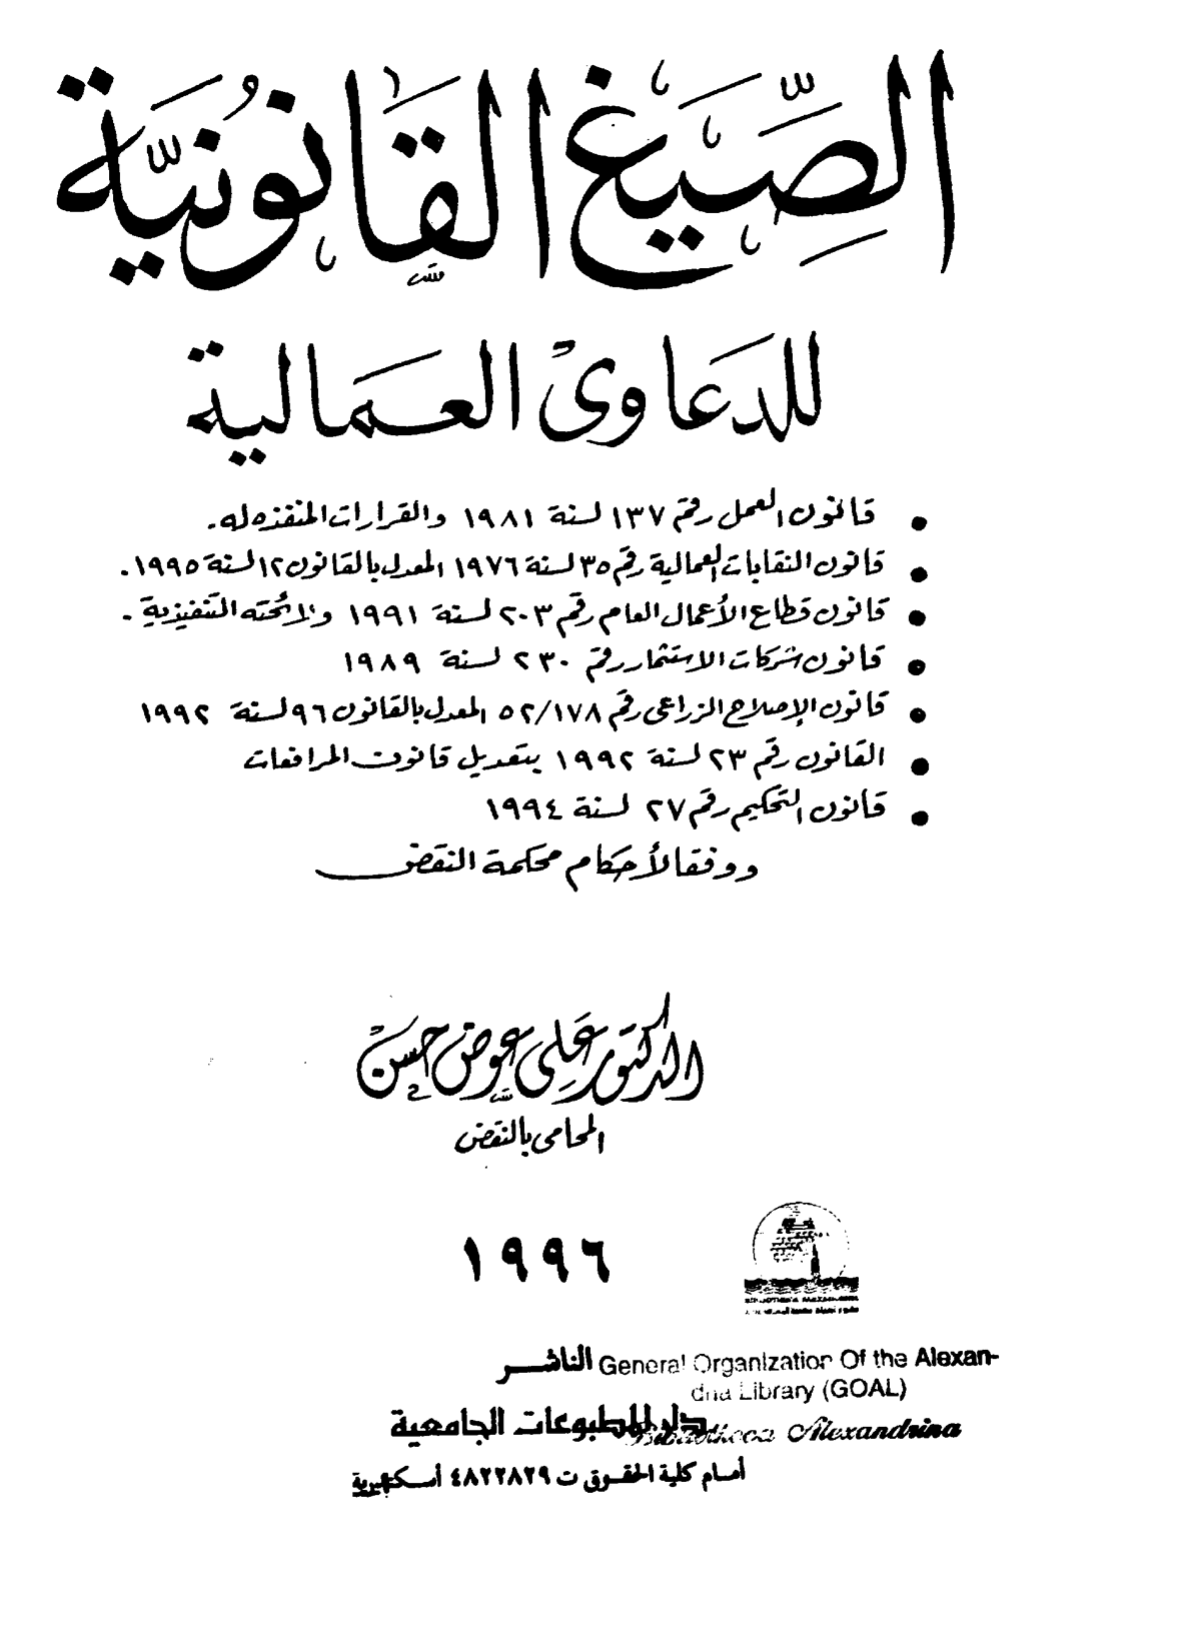 الصِّيَغ القَانُونيَّة
للدعاوى العمالية
• قانون العمل رقم ١٣٧ لسنة ١٩٨١ والقرارات المنفذه له.
• قانون النقابات العمالية رقم ٣٥ لسنة ١٩٧٦ المعدل بالقانون ١٢ لسنة ١٩٩٥.
• قانون قطاع الأعمال العام رقم ٢٠٣ لسنة ١٩٩١ ولائحته التنفيذية.
• قانون شركات الاستثمار رقم ٢٣٠ لسنة ١٩٨٩
• قانون الإصلاح الزراعى رقم ٥٢/١٧٨ المعدل بالقانون ٩٦ لسنة ١٩٩٢
• القانون رقم ٢٣ لسنة ١٩٩٢ بتعديل قانون المرافعات
• قانون التحكيم رقم ٢٧ لسنة ١٩٩٤
ووفقا لأحكام محكمة النقض
الدكتور على عوض حسن
المحامى بالنقض
١٩٩٦
الناشر
General Organization Of the Alexan-
dria Library (GOAL)
دار المطبوعات الجامعية
Bibliotheca Alexandrina
أمام كلية الحقوق ت ٤٨٢٢٨٢٩ أسكندرية